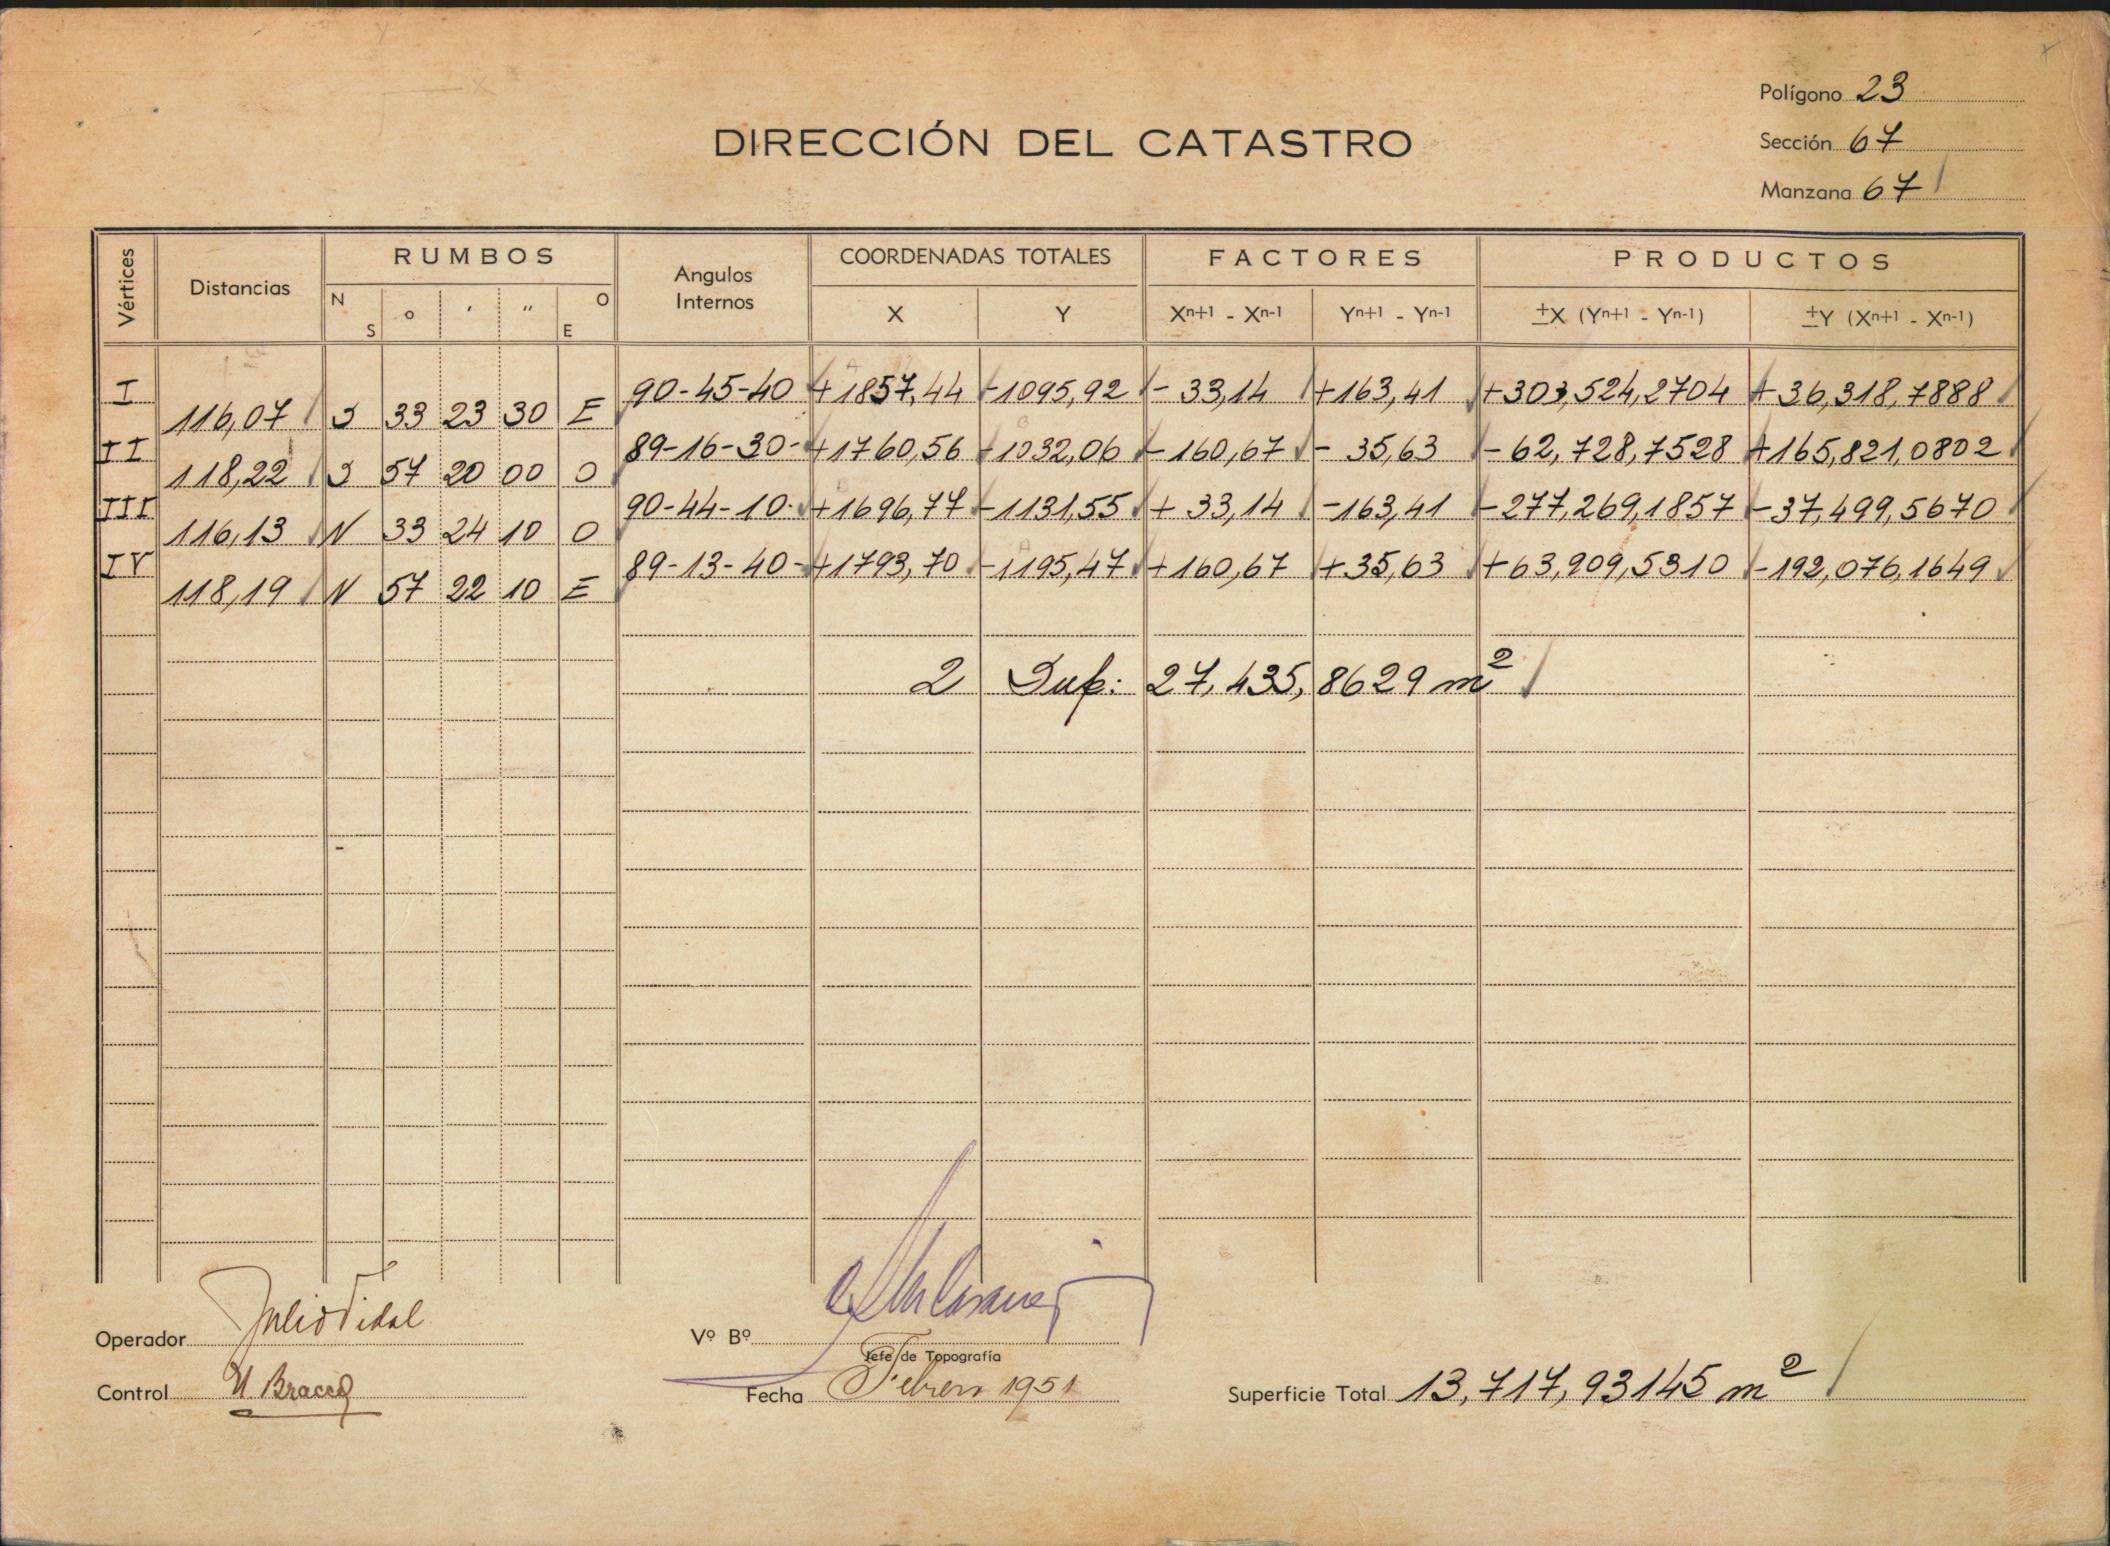 Polígono 23
DIRECCIÓN DEL CATASTRO
Sección 67
Manzana 67
Vértices Distancias RUMBOS Angulos Internos COORDENADAS TOTALES FACTORES PRODUCTOS
N S ° ' " O E X Y Xn+1 - Xn-1 Yn+1 - Yn-1 ±X (Yn+1 - Yn-1) ±Y (Xn+1 - Xn-1)
I 90-45-40 +1857,44 -1095,92 - 33,14 +163,41 +303,524,2704 +36,318,7888
116,07 S 33 23 30 E
II 89-16-30- +1760,56 -1032,06 -160,67 - 35,63 -62,728,7528 +165,821,0802
118,22 S 57 20 00 O
III 90-44-10- +1696,77 -1131,55 + 33,14 -163,41 -277,269,1857 -37,499,5670
116,13 N 33 24 10 O
IV 89-13-40- +1793,70 -1195,47 +160,67 +35,63 +63,909,5310 -192,076,1649
118,19 N 57 22 10 E
2 Sup: 27,435,8629 m²
Operador Julio Vidal Vº Bº
Jefe de Topografía
Control H Bracco Fecha Febrero 1951 Superficie Total 13,717,93145 m²